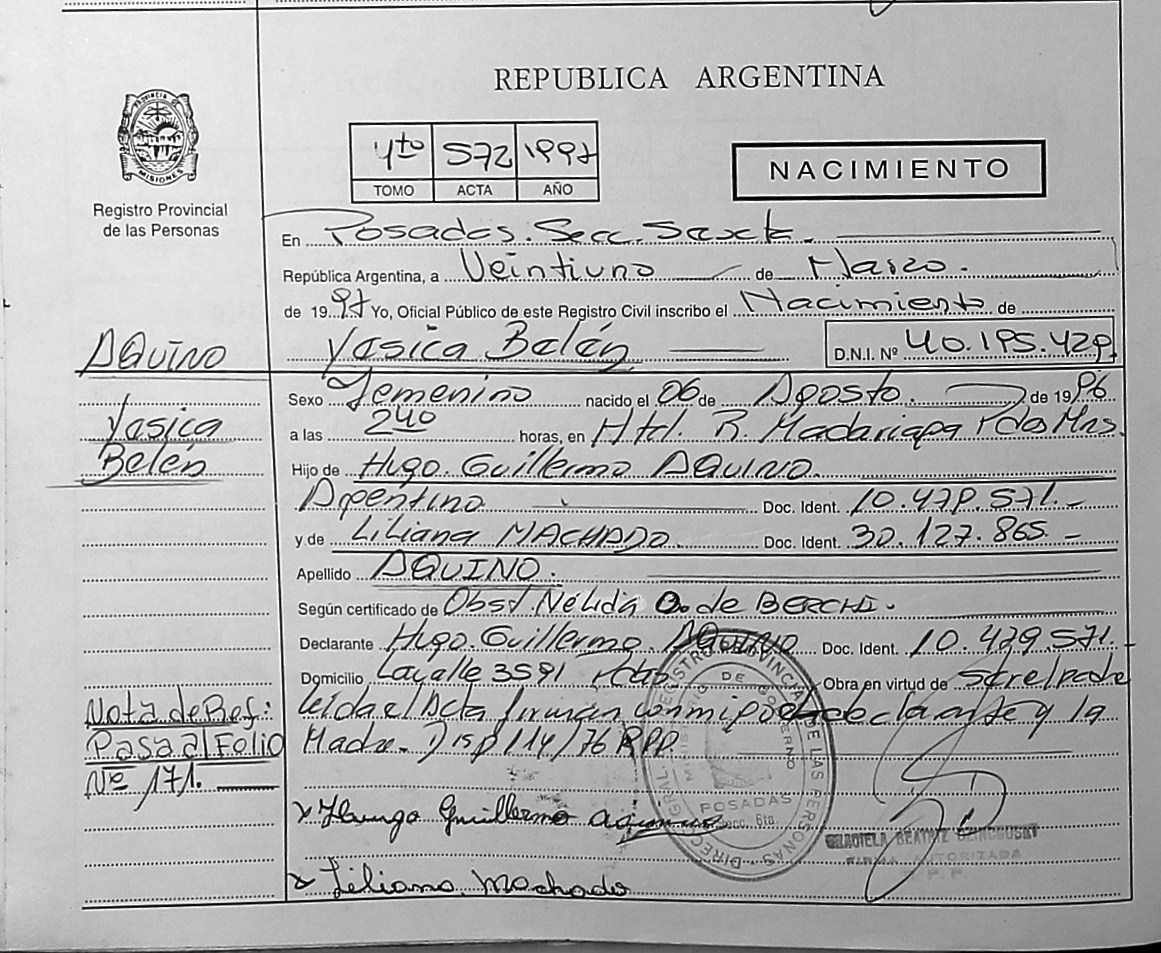 REPUBLICA ARGENTINA
PROVINCIA DE
MISIONES
Registro Provincial
de las Personas
4to 572 1997
TOMO ACTA AÑO
NACIMIENTO
En Posadas. Secc. Sexta.
República Argentina, a Veintiuno de Marzo.
de 1997 Yo, Oficial Público de este Registro Civil inscribo el Nacimiento de
Yasica Belén D.N.I. Nº 40.195.429
AQUINO
Yasica
Belén
Sexo Femenino nacido el 06 de Agosto. de 1996
a las 240 horas, en Htal. R. Madariaga Pdas Mns.
Hijo de Hugo. Guillermo AQUINO.
Argentino Doc. Ident. 10.479.571.-
y de Liliana MACHADO. Doc. Ident. 30.127.865.-
Apellido AQUINO.
Según certificado de Obst. Nélida O. de BERCHI.
Declarante Hugo. Guillermo. AQUINO Doc. Ident. 10.479.571.-
Domicilio Lavalle 3591 Pdas. Obra en virtud de ser el padre
leida el Acta firman conmigo el declarante y la
Madre. Disp 114/76 RPP.
Nota de Ref:
Pasa al Folio
Nº 171.
x Hugo Guillermo Aquino
x Liliana Machado
DIREC. GRAL. REGISTRO PROVINCIAL DE LAS PERSONAS
MINISTERIO DE GOBIERNO
POSADAS
Secc. 6ta.
GRACIELA BEATRIZ
FIRMA AUTORIZADA